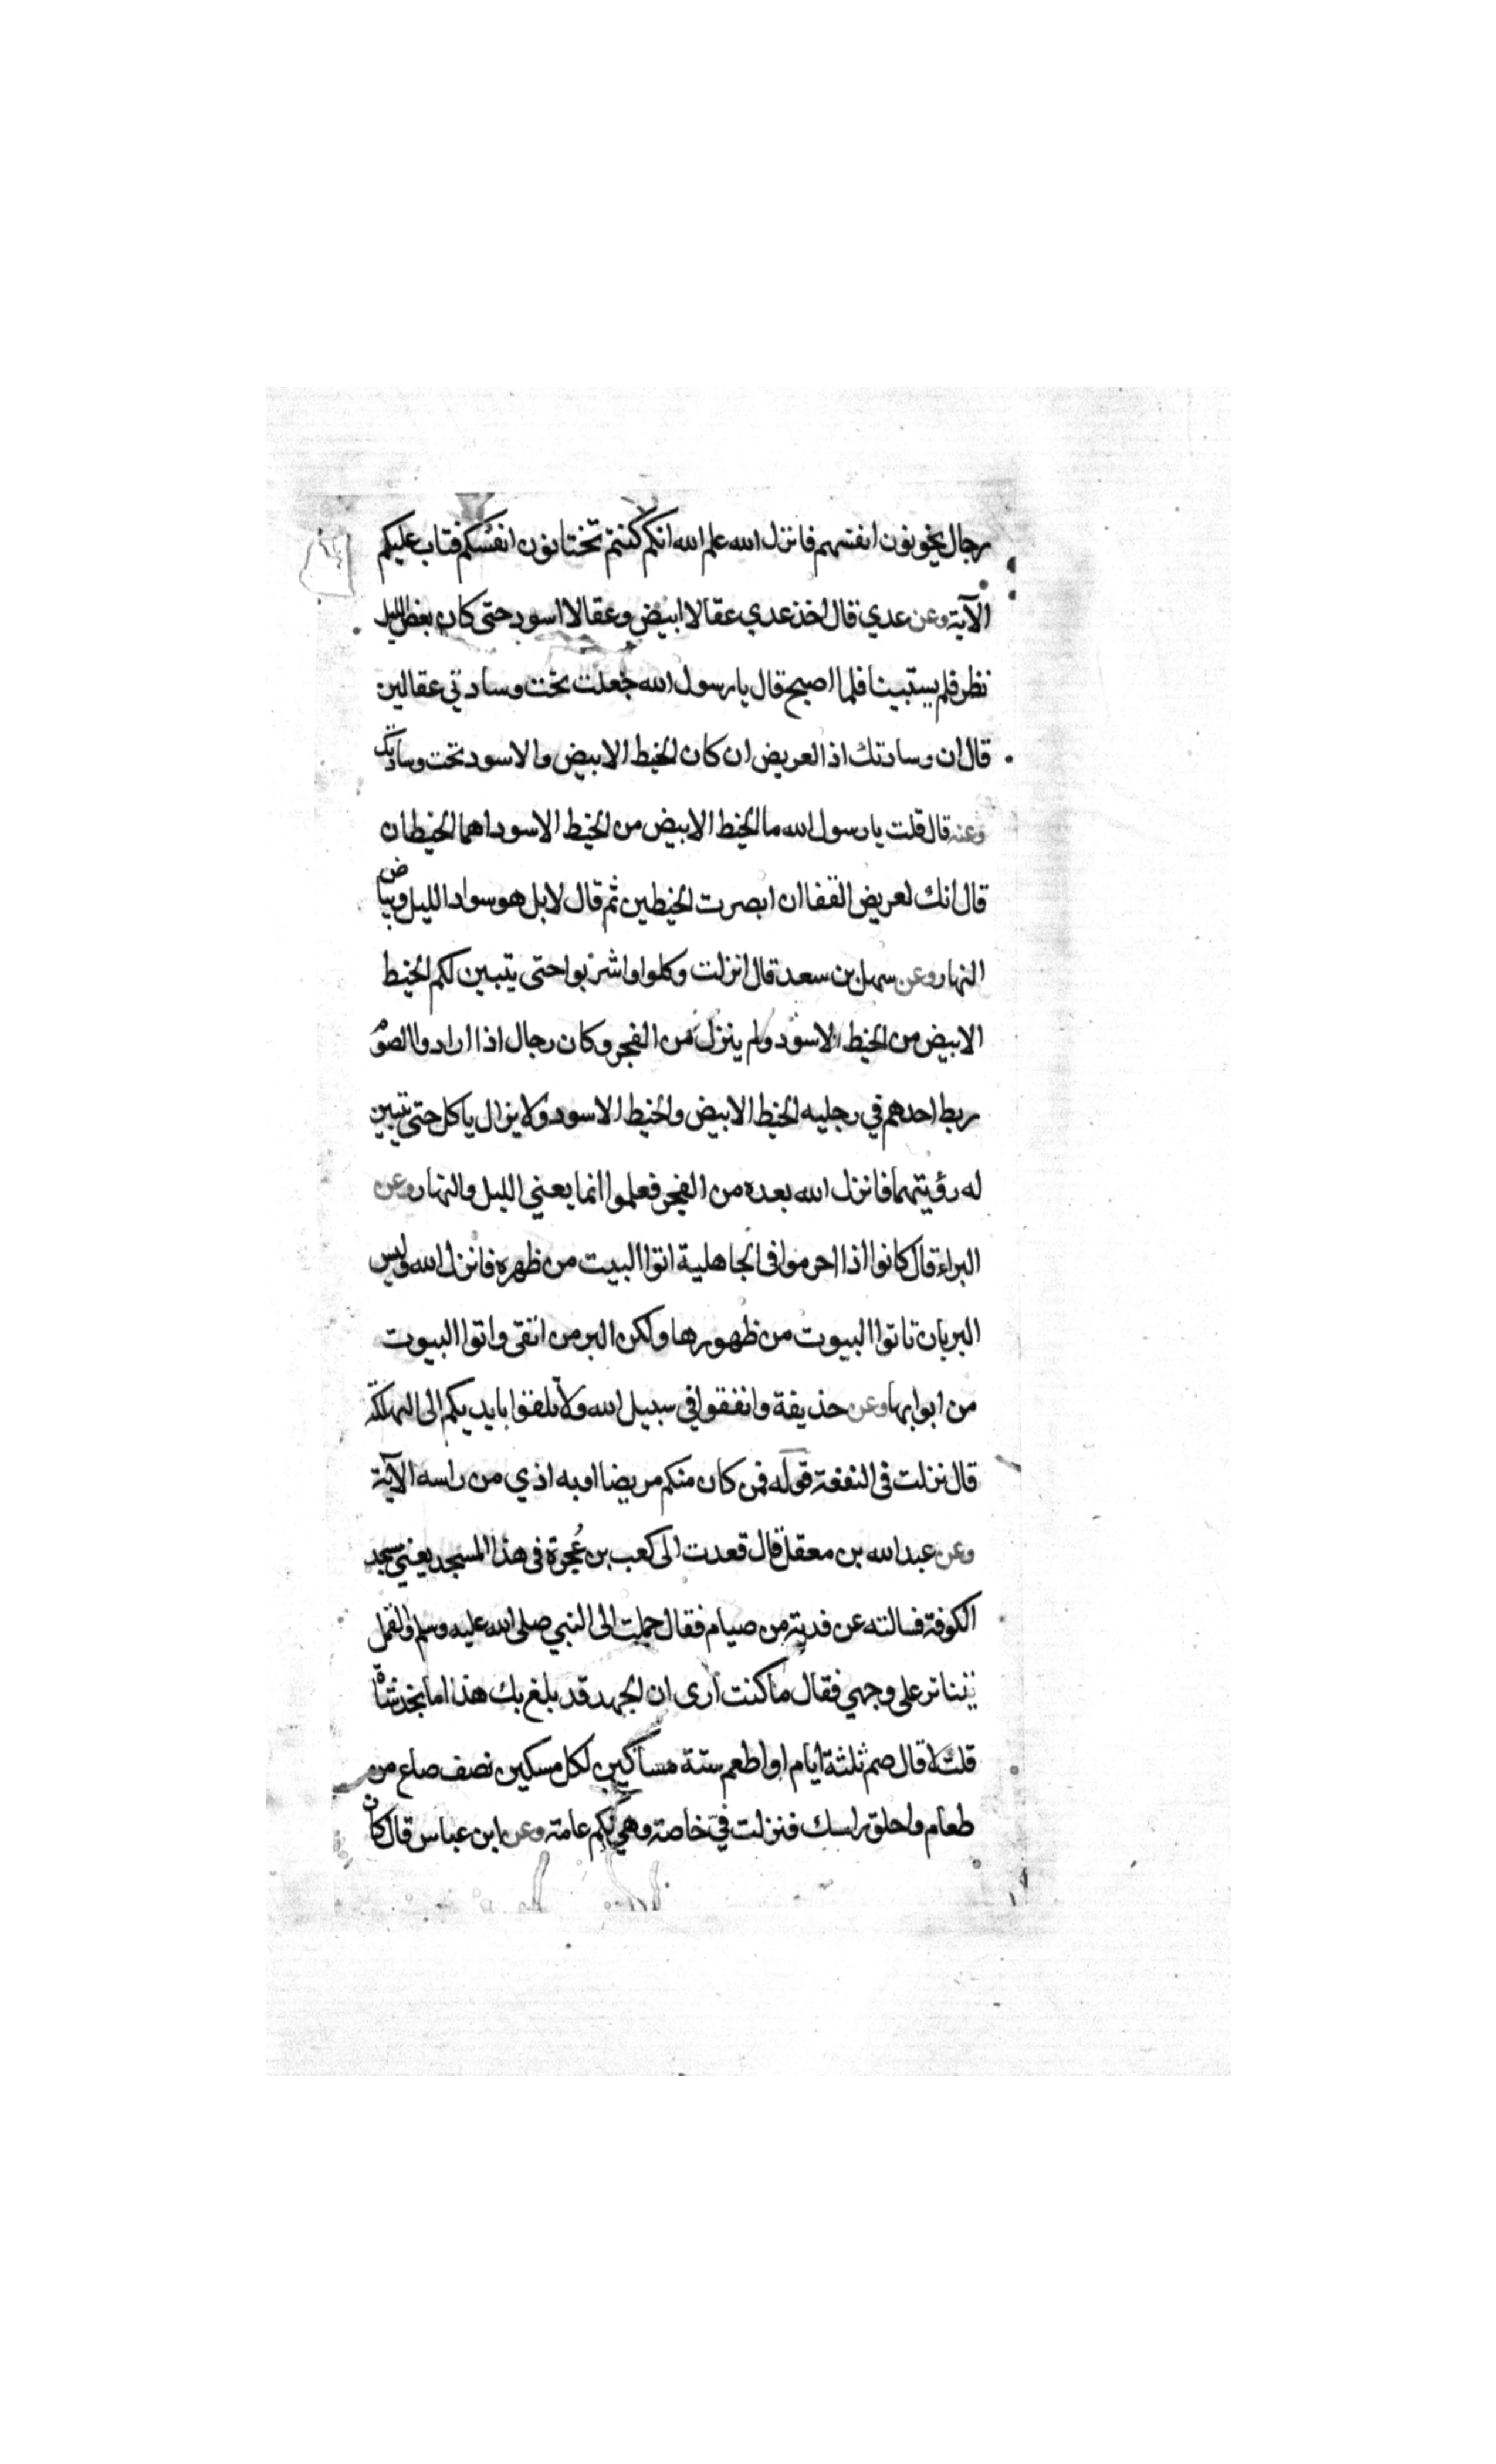 رجال يخونون انفسهم فانزل الله علم الله انكم كنتم تختانون انفسكم فتاب عليكم
الآية وعن عدي قال اخذ عدي عقالا ابيض وعقالا اسود حتى كان بعض الليل
نظر فلم يستبينا فلما اصبح قال يا رسول الله جعلت تحت وسادتي عقالين
قال ان وسادتك اذا لعريض ان كان الخيط الابيض والاسود تحت وسادتك
وعنه قال قلت يا رسول الله ما الخيط الابيض من الخيط الاسود اهما الخيطان
قال انك لعريض القفا ان ابصرت الخيطين ثم قال لا بل هو سواد الليل وبياض
النهار وعن سهل بن سعد قال انزلت وكلوا واشربوا حتى يتبين لكم الخيط
الابيض من الخيط الاسود ولم ينزل من الفجر وكان رجال اذا ارادوا الصوم
ربط احدهم في رجليه الخيط الابيض والخيط الاسود ولا يزال ياكل حتى تتبين
له رؤيتهما فانزل الله بعده من الفجر فعلموا انما يعني الليل والنهار وعن
البراء قال كانوا اذا احرموا في الجاهلية اتوا البيت من ظهره فانزل الله وليس
البر بان تاتوا البيوت من ظهورها ولكن البر من اتقى واتوا البيوت
من ابوابها وعن حذيفة وانفقوا في سبيل الله ولا تلقوا بايديكم الى التهلكة
قال نزلت في النفقة قوله فمن كان منكم مريضا او به اذي من راسه الآية
وعن عبد الله بن معقل قال قعدت الى كعب بن عُجرة في هذا المسجد يعني مسجد
الكوفة فسالته عن فدية من صيام فقال حملت الى النبي صلى الله عليه وسلم والقمل
يتناثر على وجهي فقال ما كنت ارى ان الجهد قد بلغ بك هذا اما تجد شاة
قلت لا قال صم ثلثة ايام او اطعم ستة مساكين لكل مسكين نصف صاع من
طعام واحلق راسك فنزلت فيّ خاصة وهي لكم عامة وعن ابن عباس قال كان